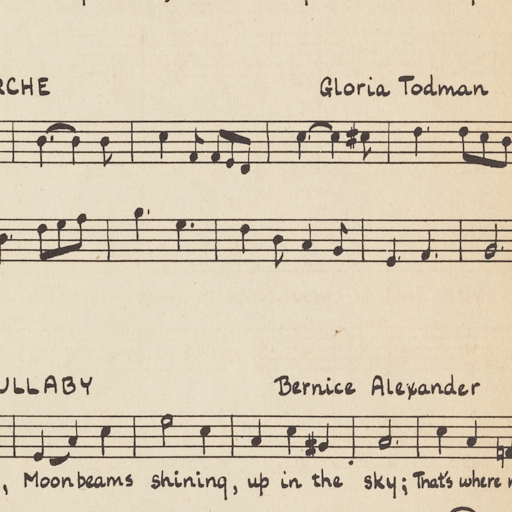 RCHE Gloria Todman
ULLABY Bernice Alexander
, Moonbeams shining, up in the sky; That's where